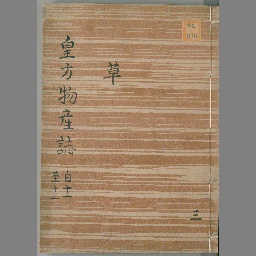 草
皇方物産誌
自十
至十一
三